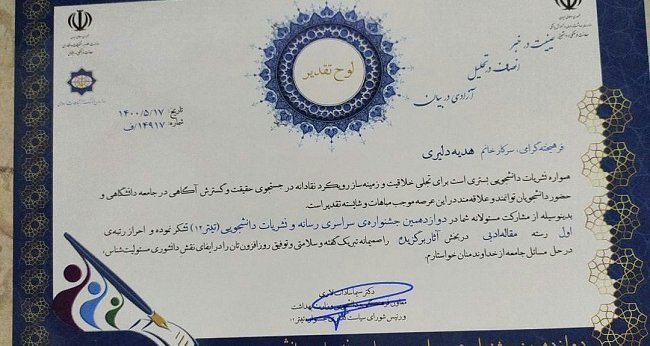 لوح تقدیر
عینیت در خبر
انصاف در تحلیل
آزادی در بیان
تاریخ: ۱۴۰۰/۵/۱۷
شماره: ۱۴۹۱۷/ف
فرهیخته گرامی، سرکار خانم هدیه دلیری
همواره نشریات دانشجویی بستری است برای تجلی خلاقیت و زمینه‌ساز رویکرد نقادانه در جستجوی حقیقت و گسترش آگاهی در جامعه دانشگاهی و
حضور دانشجویان توانمند و علاقه‌مند در این عرصه موجب مباهات و شایسته تقدیر است.
بدینوسیله از مشارکت مسئولانه شما در دوازدهمین جشنواره‌ی سراسری رسانه و نشریات دانشجویی (تیتر۱۲) تشکر نموده و احراز رتبه‌ی
اول رسته مقاله ادبی در بخش آثار برگزیده را صمیمانه تبریک گفته و سلامتی و توفیق روزافزون تان را در ایفای نقش دانشوری مسئولیت‌شناس،
در حل مسائل جامعه از خداوند منان خواستارم.
دکتر سیما سادات لاری
و رئیس شورای سیاست